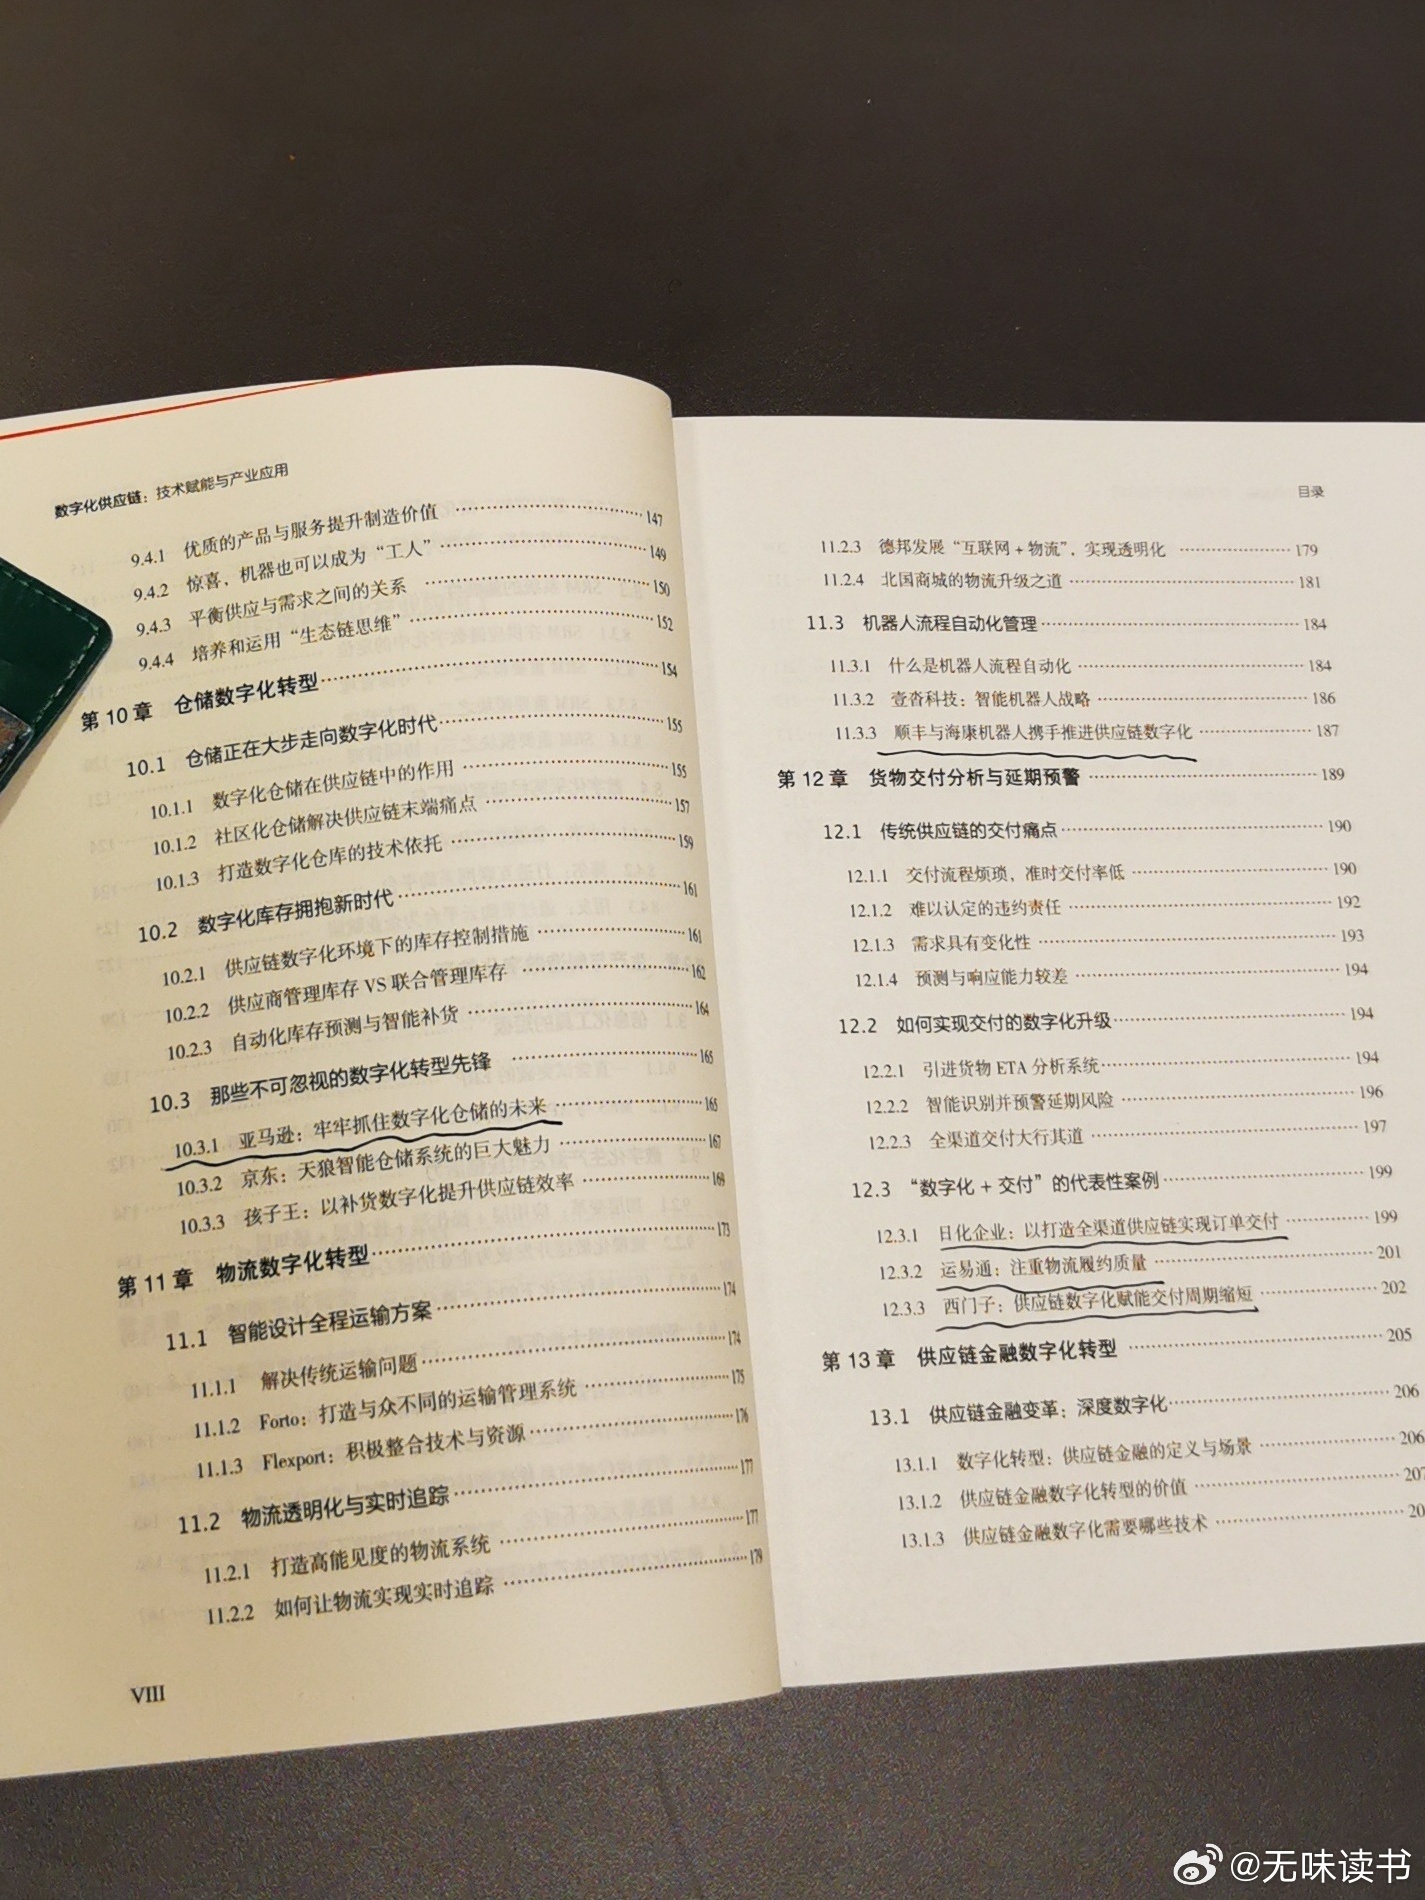 数字化供应链：技术赋能与产业应用
9.4.1 优质的产品与服务提升制造价值 147
9.4.2 惊喜，机器也可以成为“工人” 149
9.4.3 平衡供应与需求之间的关系 150
9.4.4 培养和运用“生态链思维” 152
第 10 章 仓储数字化转型 154
10.1 仓储正在大步走向数字化时代 155
10.1.1 数字化仓储在供应链中的作用 155
10.1.2 社区化仓储解决供应链末端痛点 157
10.1.3 打造数字化仓库的技术依托 159
10.2 数字化库存拥抱新时代 161
10.2.1 供应链数字化环境下的库存控制措施 161
10.2.2 供应商管理库存 VS 联合管理库存 162
10.2.3 自动化库存预测与智能补货 164
10.3 那些不可忽视的数字化转型先锋 165
10.3.1 亚马逊：牢牢抓住数字化仓储的未来 165
10.3.2 京东：天狼智能仓储系统的巨大魅力 167
10.3.3 孩子王：以补货数字化提升供应链效率 169
第 11 章 物流数字化转型 173
11.1 智能设计全程运输方案 174
11.1.1 解决传统运输问题 174
11.1.2 Forto：打造与众不同的运输管理系统 175
11.1.3 Flexport：积极整合技术与资源 176
11.2 物流透明化与实时追踪 177
11.2.1 打造高能见度的物流系统 177
11.2.2 如何让物流实现实时追踪 179
VIII
目录
11.2.3 德邦发展“互联网 + 物流”，实现透明化 179
11.2.4 北国商城的物流升级之道 181
11.3 机器人流程自动化管理 184
11.3.1 什么是机器人流程自动化 184
11.3.2 壹沓科技：智能机器人战略 186
11.3.3 顺丰与海康机器人携手推进供应链数字化 187
第 12 章 货物交付分析与延期预警 189
12.1 传统供应链的交付痛点 190
12.1.1 交付流程烦琐，准时交付率低 190
12.1.2 难以认定的违约责任 192
12.1.3 需求具有变化性 193
12.1.4 预测与响应能力较差 194
12.2 如何实现交付的数字化升级 194
12.2.1 引进货物 ETA 分析系统 194
12.2.2 智能识别并预警延期风险 196
12.2.3 全渠道交付大行其道 197
12.3 “数字化 + 交付”的代表性案例 199
12.3.1 日化企业：以打造全渠道供应链实现订单交付 199
12.3.2 运易通：注重物流履约质量 201
12.3.3 西门子：供应链数字化赋能交付周期缩短 202
第 13 章 供应链金融数字化转型 205
13.1 供应链金融变革：深度数字化 206
13.1.1 数字化转型：供应链金融的定义与场景 206
13.1.2 供应链金融数字化转型的价值 207
13.1.3 供应链金融数字化需要哪些技术
@无味读书